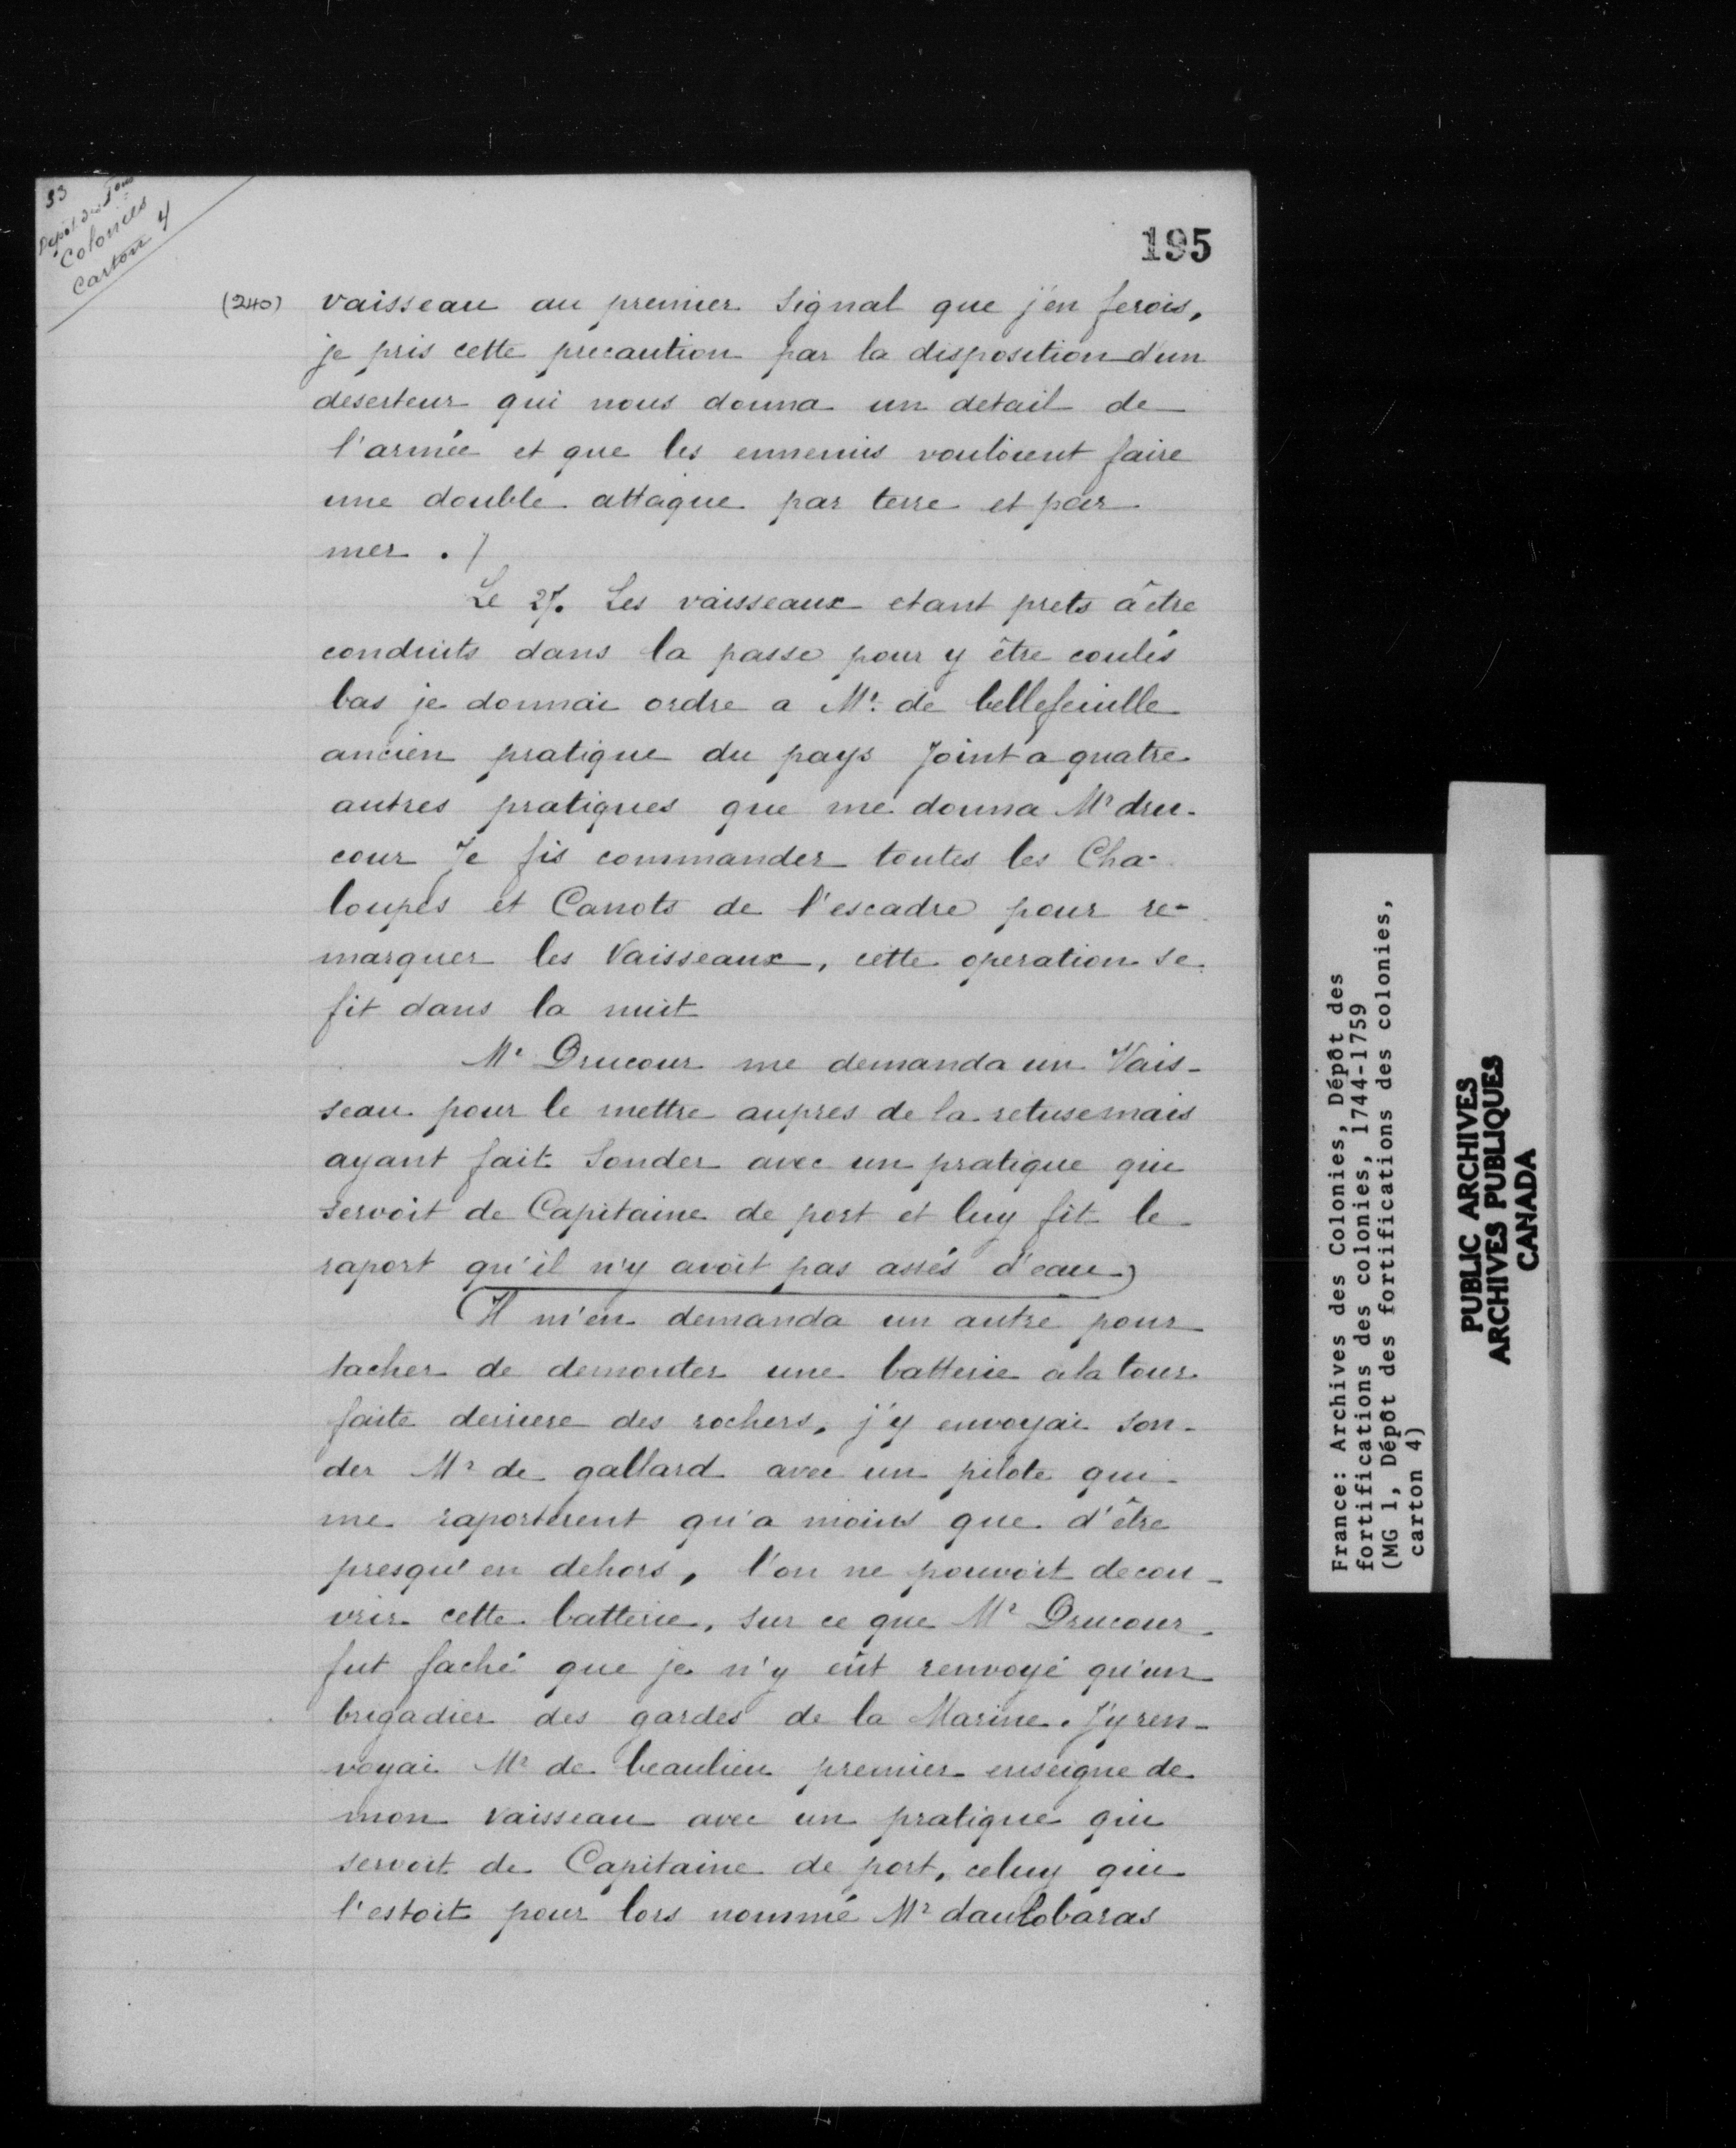 33
Dépôt des
Colonies
Carton 4
195
(240) vaisseau au premier signal que j'en ferois,
je pris cette precaution par la disposition d'un
deserteur qui nous donna un detail de
l'armée et que les ennemis vouloient faire
une double attaque par terre et par
mer ./
Le 27. Les vaisseaux etant prets à être
conduits dans la passe pour y être coulés
bas je donnai ordre a Mr. de bellefeuille
ancien pratique du pays Joint a quatre
autres pratiques que me donna Mr dru-
cour Je fis commander toutes les Cha-
loupes et Canots de l'escadre pour re-
marquer les Vaisseaux, cette operation se
fit dans la nuit
Mr Drucour me demanda un Vais-
seau pour le mettre aupres de la retuse mais
ayant fait Sonder avec un pratique qui
servoit de Capitaine de port et luy fit le
raport qu'il n'y avoit pas assés d'eau)
(Il m'en demanda un autre pour
tacher de demonter une batterie a la tour
faite derriere des rochers, j'y envoyai son-
der Mr de gallard avec un pilote qui
me raporterent qu'a moins que d'être
presqu'en dehors, l'on ne pouvoit decou-
vrir cette batterie, sur ce que Mr Drucour
fut faché que je n'y eût renvoyé qu'un
brigadier des gardes de la Marine. J'y ren-
voyai Mr de beaulieu premier enseigne de
mon vaisseau avec un pratique qui
servoit de Capitaine de port, celuy qui
l'estoit pour lors nommé Mr daulobaras
France: Archives des Colonies, Dépôt des
fortifications des colonies, 1744-1759
(MG 1, Dépôt des fortifications des colonies,
carton 4)
PUBLIC ARCHIVES
ARCHIVES PUBLIQUES
CANADA